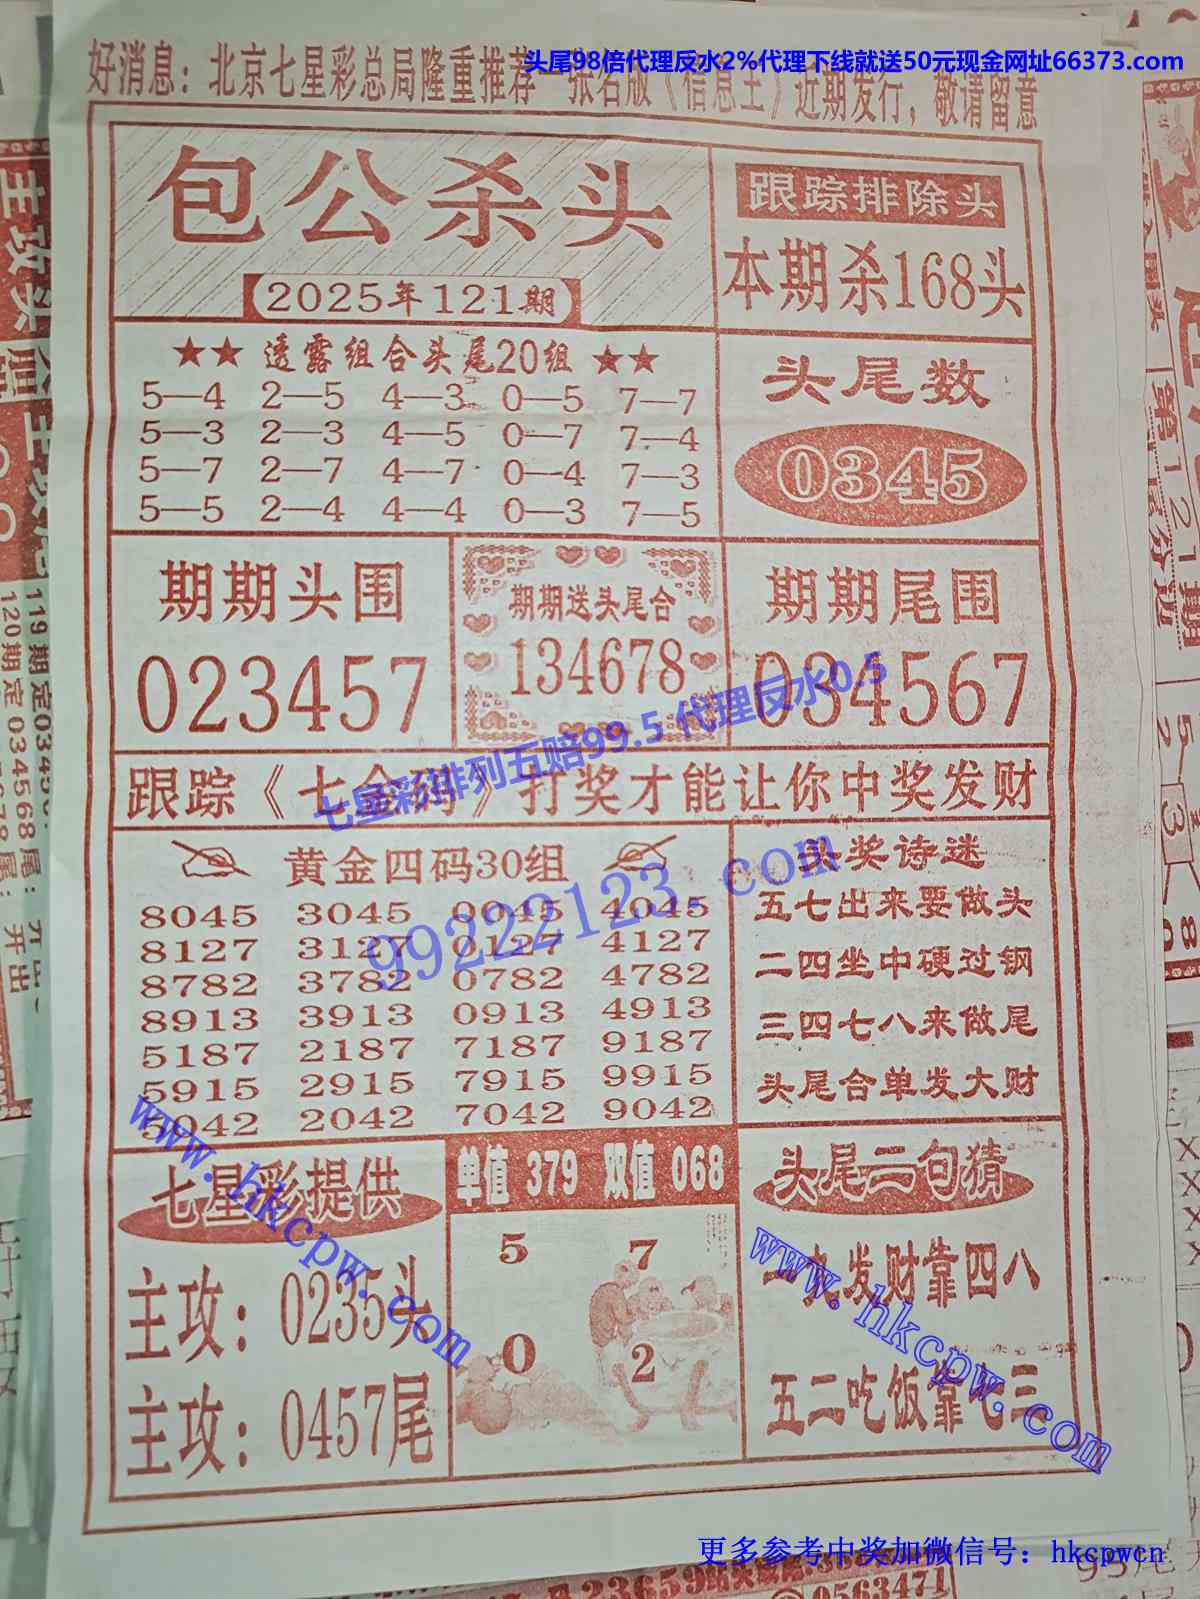 头尾98倍代理反水2%代理下线就送50元现金网址66373.com
好消息：北京七星彩总局隆重推荐一张名版《信息王》近期发行，敬请留意
包公杀头
2025年121期
跟踪排除头
本期杀168头
★★ 透露组合头尾20组 ★★
5—4 2—5 4—3 0—5 7—7
5—3 2—3 4—5 0—7 7—4
5—7 2—7 4—7 0—4 7—3
5—5 2—4 4—4 0—3 7—5
头尾数
0345
期期头围
023457
期期送头尾合
134678
期期尾围
034567
七星彩排列五赔99.5 代理反水0.5
跟踪《七合码》打奖才能让你中奖发财
黄金四码30组
8045 3045 0045 4045
8127 3127 0127 4127
8782 3782 0782 4782
8913 3913 0913 4913
5187 2187 7187 9187
5915 2915 7915 9915
5042 2042 7042 9042
99222123.com
头奖诗迷
五七出来要做头
二四坐中硬过钢
三四七八来做尾
头尾合单发大财
七星彩提供
主攻：0235头
主攻：0457尾
www.hkcpw.com
单值 379 双值 068
5 7
0 2
头尾二句猜
一九发财靠四八
五二吃饭靠七三
www.hkcpw.com
更多参考中奖加微信号：hkcpwcn
主攻头
119期定034568尾：
120期定0345678尾： 开出
第121期
23659
0563471
95尾